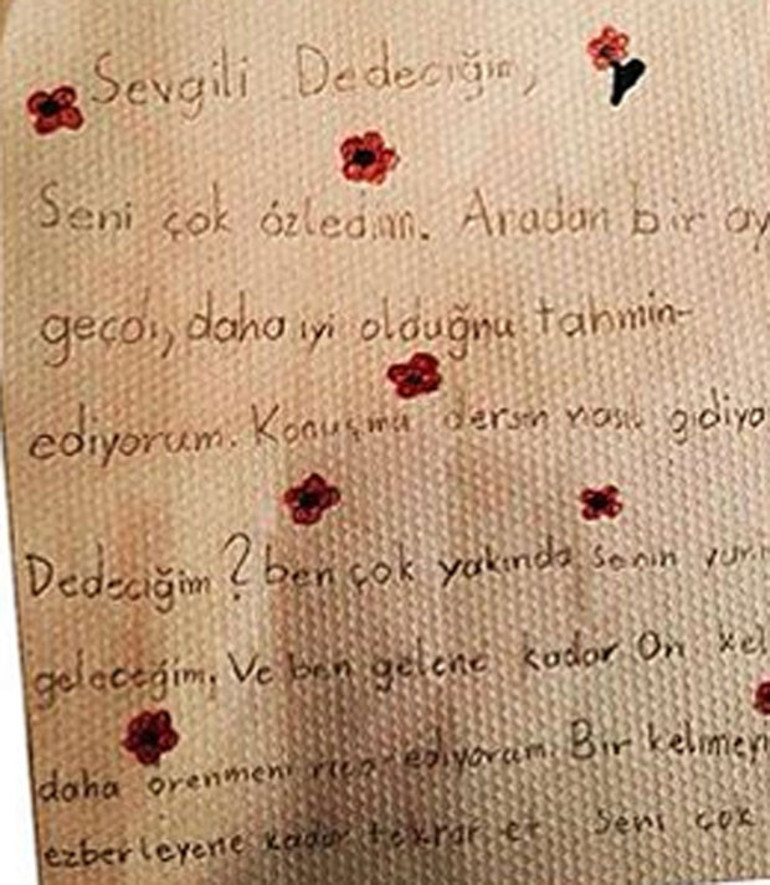 Sevgili Dedeciğim,
Seni çok özledim. Aradan bir ay
geçdi, daha iyi olduğnu tahmin-
ediyorum. Konuşma dersin nasıl gidiyo
Dedeciğim? ben çok yakında senin
geleceğim. Ve ben gelene kadar On kel
daha örenmeni rica ediyorum. Bir kelimeyi
ezberleyene kadar tekrar et Seni çok